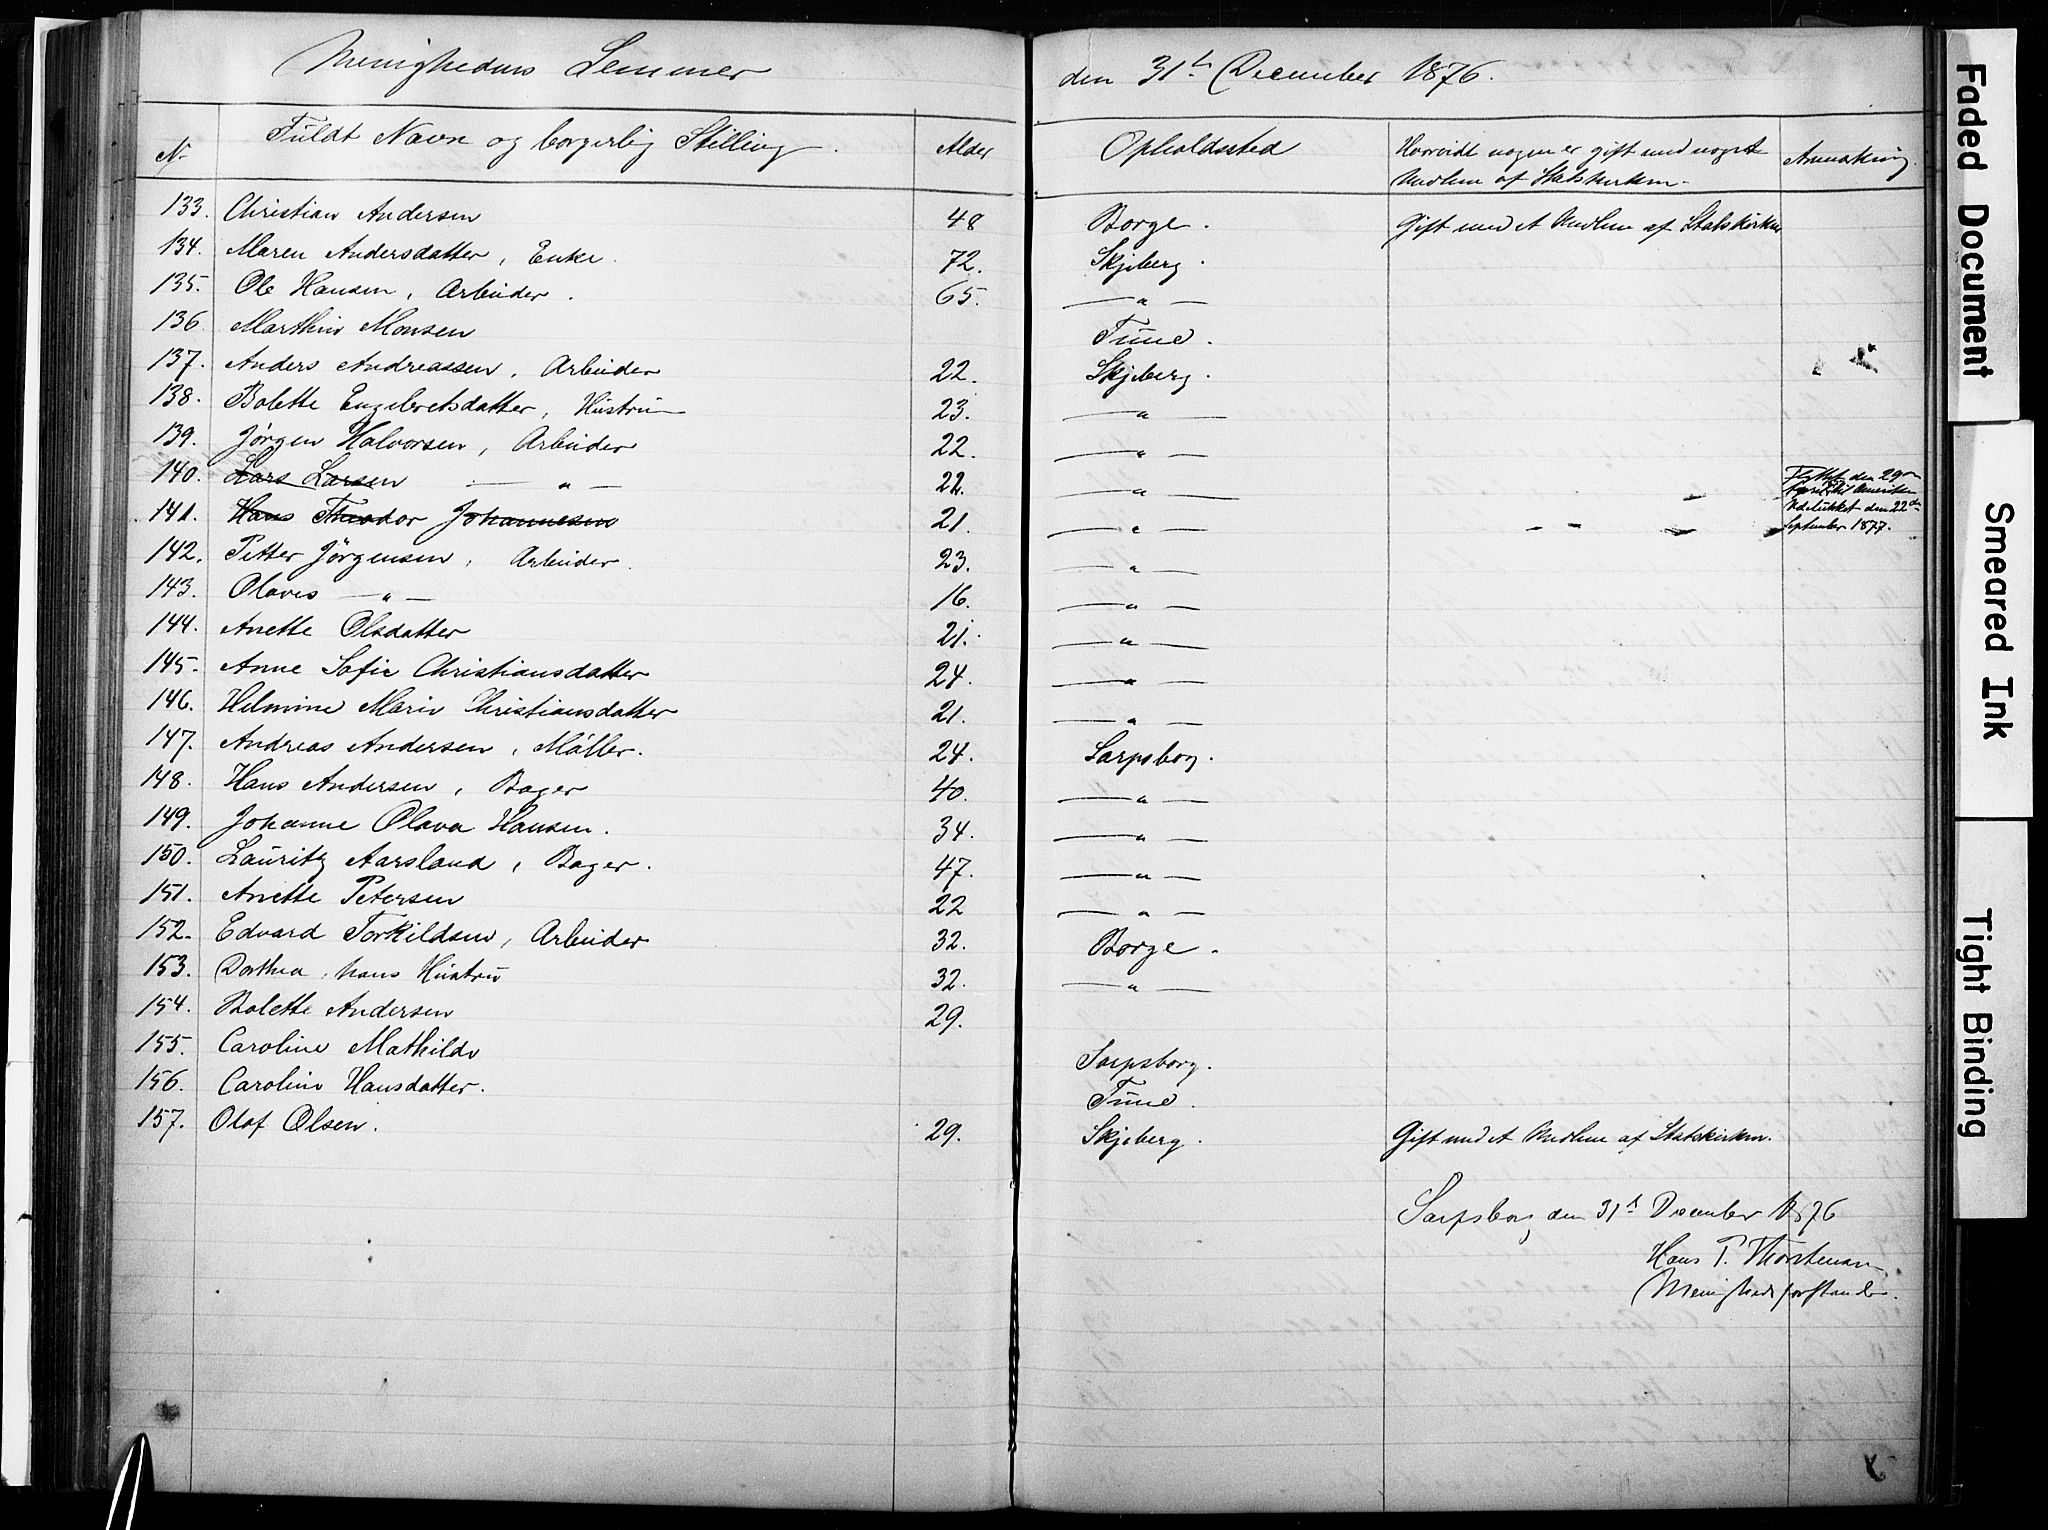 Menighedens Lemmer den 31te December 1876.
N. Fuldt Navn og borgerlig Stilling. Alder Opholdssted Hvorvidt nogen er gift med noget Medlem af Statskirken. Anmærkning.
133. Christian Andersen 48 Borge. Gift med et Medlem af Statskirken
134. Maren Andersdatter, Enke. 72. Skjeberg.
135. Ole Hansen, Arbeider. 65. — " —
136. Marthin Monsen Tune.
137. Anders Andreassen, Arbeider 22. Skjeberg.
138. Bolette Engebretsdatter, Hustru 23. — " —
139. Jørgen Halvorsen, Arbeider 22. — " —
140. Lars Larsen — " — 22. — " — Flyttet den 29de April til Amerika
141. Hans Theodor Johannesen 21. — " — Udelukket den 22de September 1877.
142. Petter Jørgensen, Arbeider. 23. — " —
143. Olaves — " — 16. — " —
144. Anette Olsdatter 21. — " —
145. Anne Sofie Christiansdatter 24. — " —
146. Helmine Marie Christiansdatter 21. — " —
147. Andreas Andersen, Møller. 24. Sarpsborg.
148. Hans Andersen, Bager 40. — " —
149. Johanne Olava Hansen. 34. — " —
150. Lauritz Aarsland, Bager. 47. — " —
151. Anette Petersen 22 — " —
152. Edvard Torkildsen, Arbeider 32. Borge.
153. Dorthea, hans Hustru 32. — " —
154. Bolette Andersen 29.
155. Caroline Mathilde Sarpsborg.
156. Caroline Hansdatter. Tune.
157. Olaf Olsen. 29. Skjeberg. Gift med et Medlem af Statskirken.
Sarpsborg den 31te December 1876
Hans P.
Menighedsforstander.
Faded Document
Smeared Ink
Tight Binding